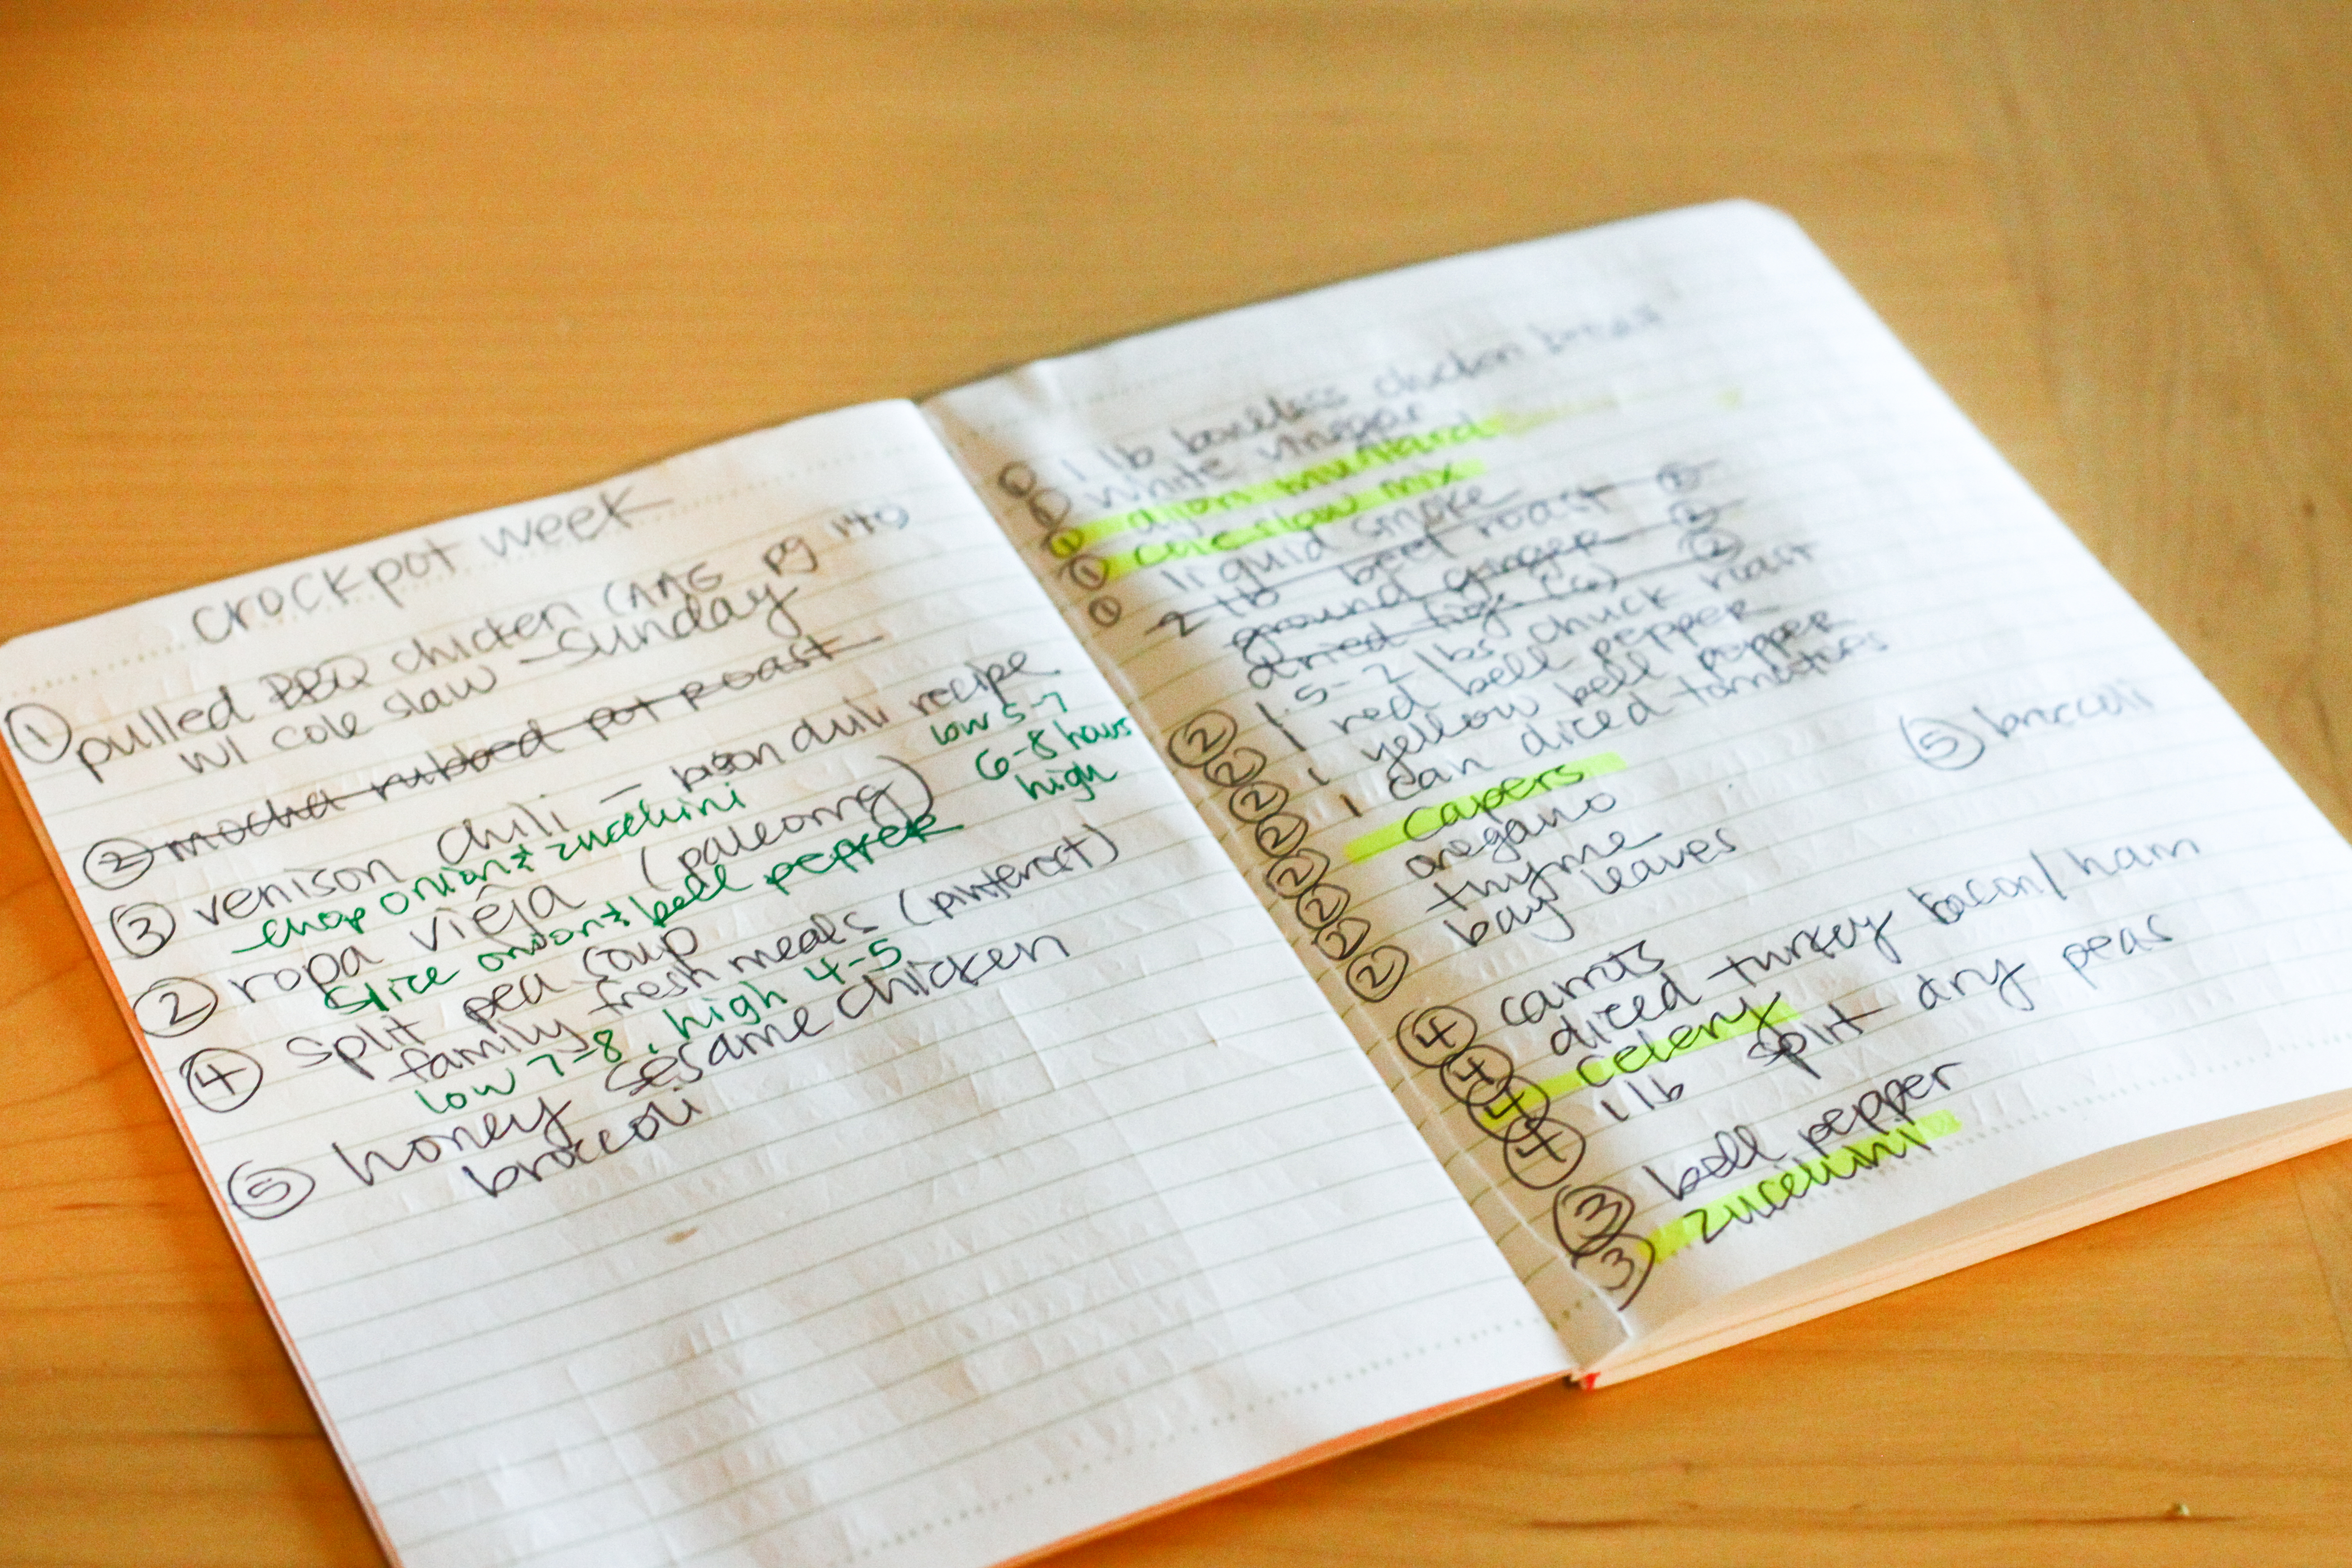 crockpot week
① pulled BBQ chicken (MG pg 140
w/ cole slaw – Sunday
② mocha rubbed pot roast
③ venison chili – bison chili recipe
- chop onion & zucchini
low 5-7
② ropa vieja (paleomg)
6-8 hours
high
slice onion & bell pepper
④ split pea soup
family fresh meals (pinterest)
low 7-8, high 4-5
⑤ honey sesame chicken
broccoli
① 1 lb boneless chicken breast
① white vinegar
① dijon mustard
① cole slaw mix
① liquid smoke
2 lb beef roast ②
ground ginger ②
dried figs (6) ②
② 1.5-2 lbs chuck roast
② 1 red bell pepper
② 1 yellow bell pepper
② 1 can diced tomatoes
② capers
② oregano
② thyme
② bay leaves
⑤ broccoli
④ carrots
④ diced turkey bacon/ham
④ celery
④ 1 lb split dry peas
③ bell pepper
③ zucchini